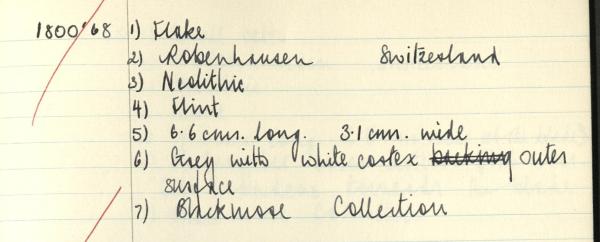 1800'68 1) Flake
2) Robenhausen Switzerland
3) Neolithic
4) Flint
5) 6.6 cms. long. 3.1 cms. wide
6) Grey with white cortex backing outer
surface
7) Blackmore Collection